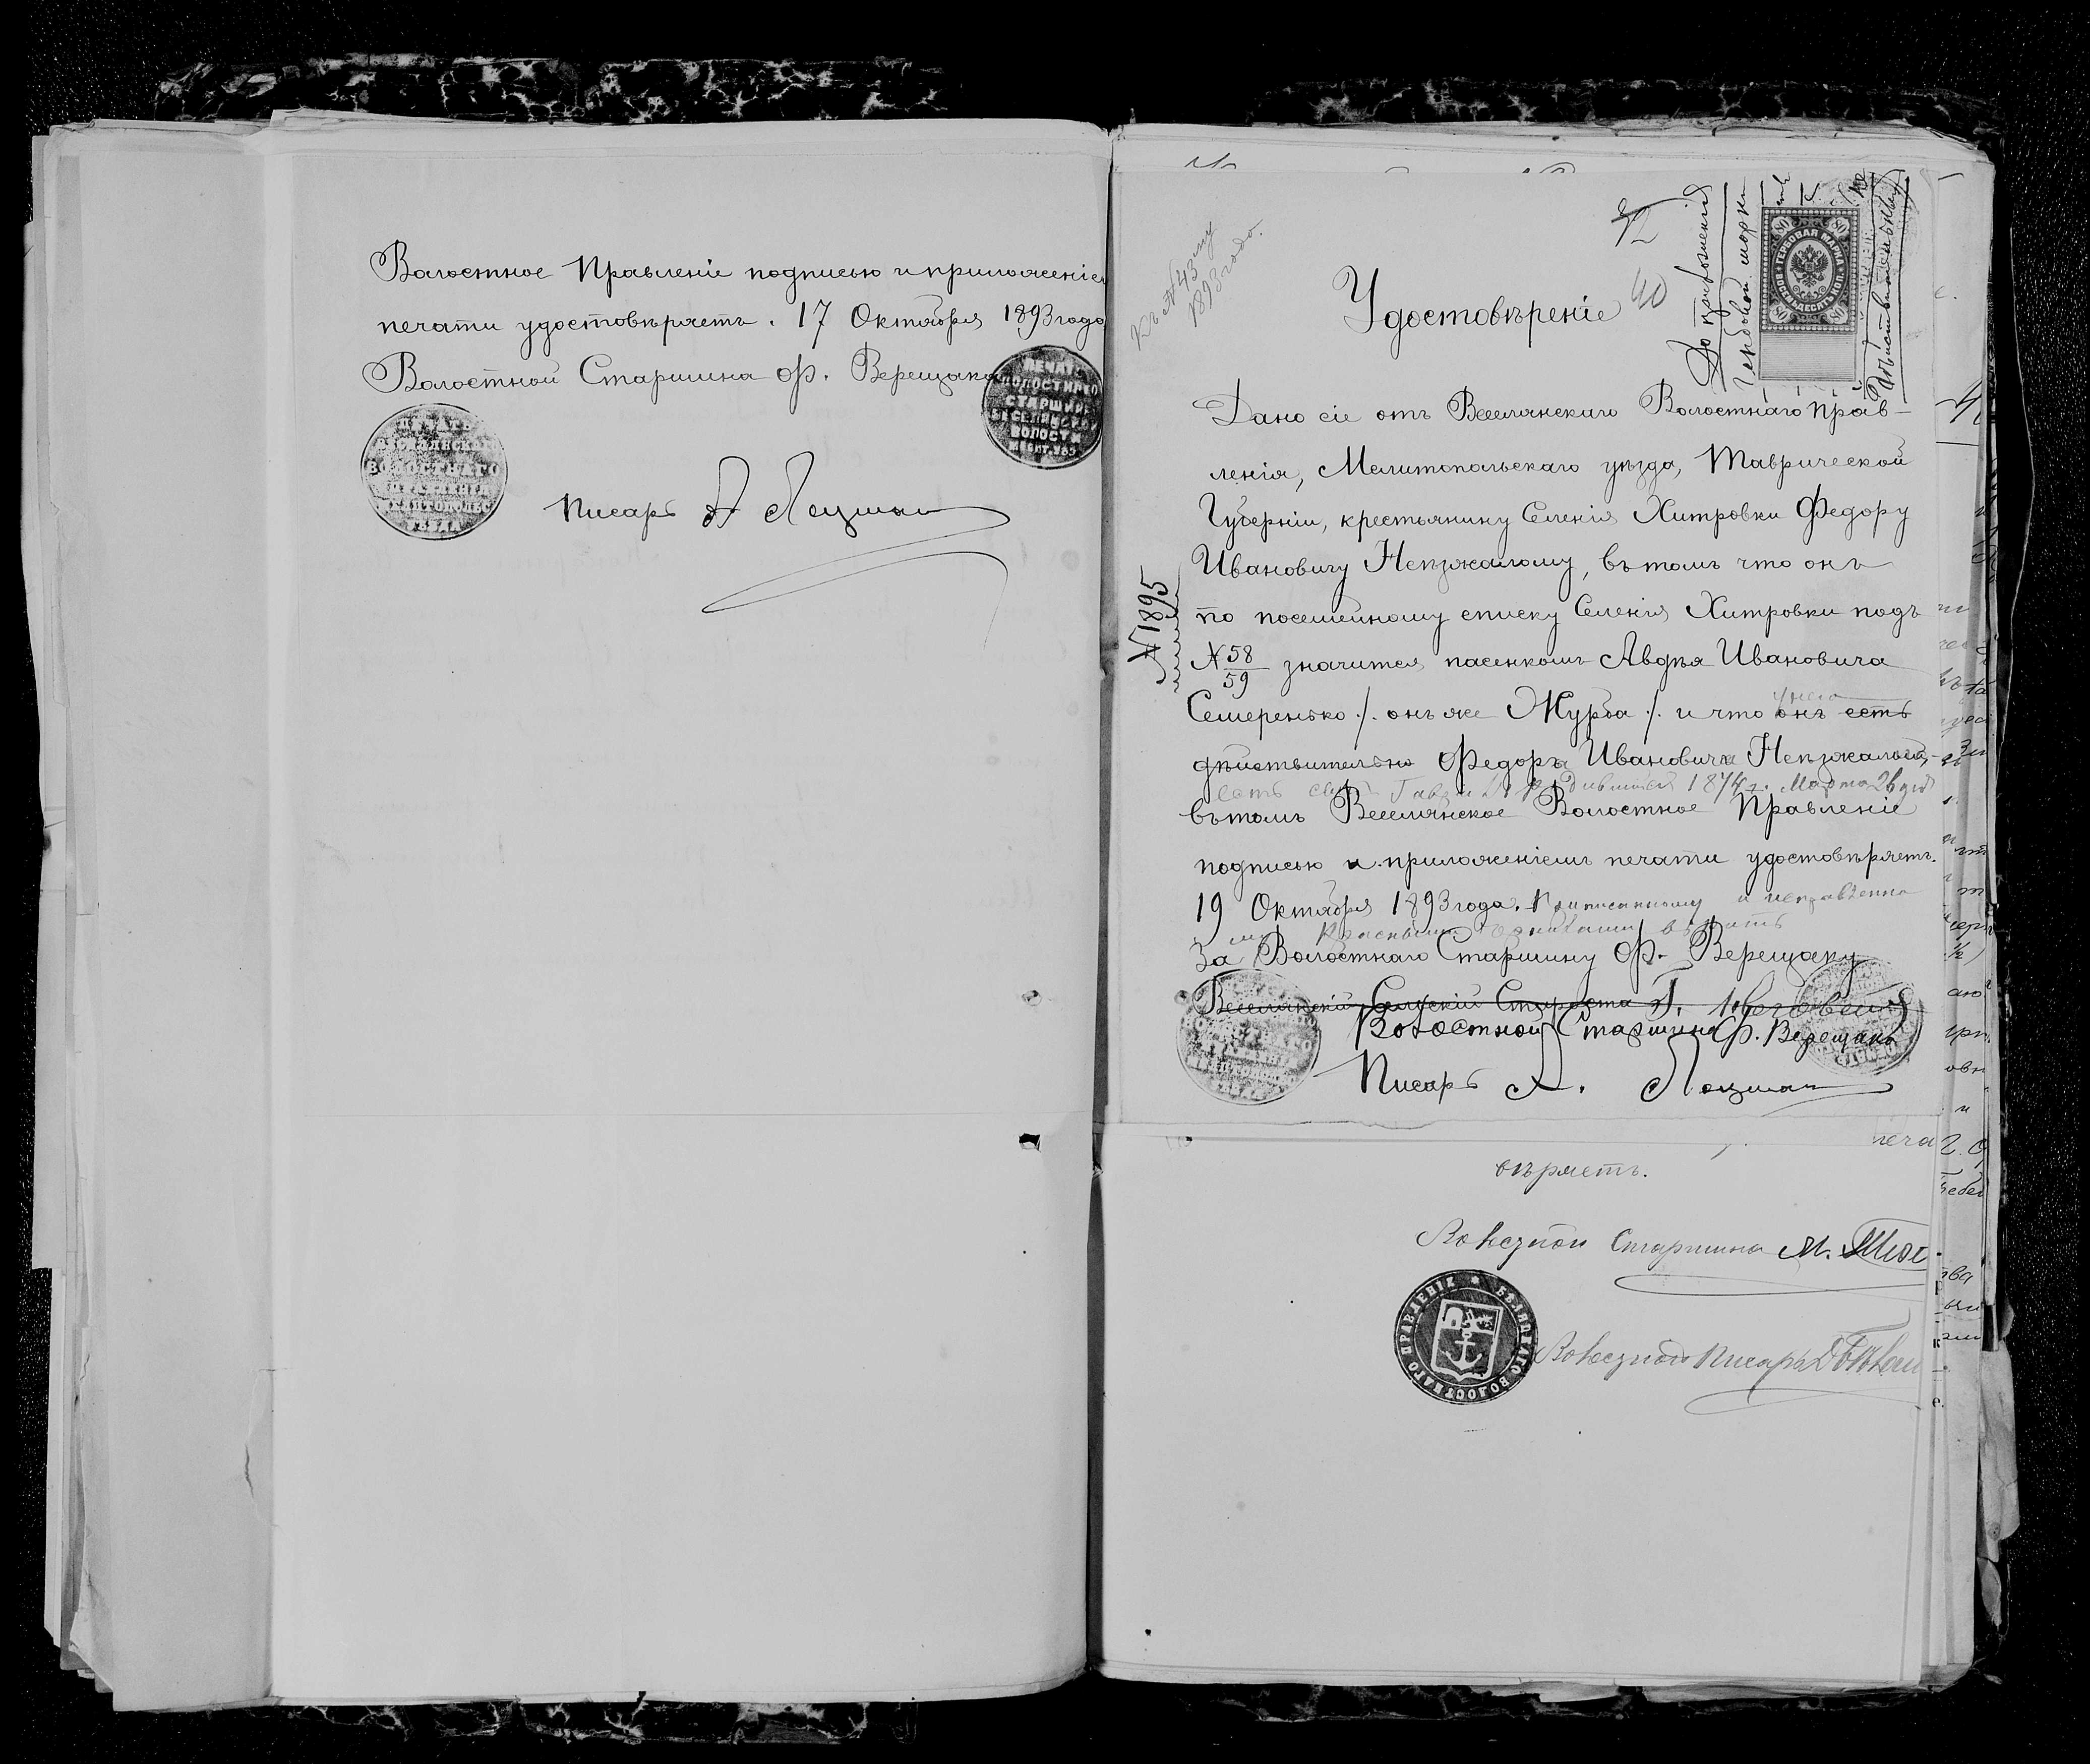 Волостное Правленіе подписью и приложеніем
печати удостовѣряетъ. 17 Октября 1893 года
Волостной Старшина Ф. Верещака
ПЕЧАТЬ
ВОЛОСТНАГО
СТАРШИН
ВЕСЕЛЯНСКОЙ
ВОЛОСТИ
ПЕЧАТЬ
ВЕСЕЛЯНСКАГО
ВОЛОСТНАГО
ПРАВЛЕНІЯ
МЕЛИТОПОЛЬС
УѢЗДА
Писарь А Лоцман
Къ № 43му
1893 года.
40
Удостовѣреніе
гербовой марки
80 80
ГЕРБОВАЯ МАРКА
ВОСЕМЬДЕСЯТЪ КОП.
80 80
Дано сіе отъ Веселянскаго Волостнаго Прав-
ленія, Мелитопольскаго уѣзда, Таврической
Губерніи, крестьянину Селенія Хитровки Федору
Ивановичу Непзжалому, въ томъ что онъ
по посемейному списку Селенія Хитровки подъ
№ 58/59 значится пасенкомъ Авдѣя Ивановича
№ 1895
Семеренько ./. онъ же Журба ./. и что онъ есть
у него
дѣйствительно Федоръ Ивановича Непзжалый,
есть сынъ родившійся 1874 г. Марта 26 дня
въ томъ Веселянское Волостное Правленіе
подписью и приложеніемъ печати удостовѣряетъ.
19 Октября 1893 года. Приписанному и исправленно
му красными чернилами вѣрить
За Волостнаго Старшину Ф. Верещаку
Веселянскій Сельскій Староста
Волостной Старшина Ф. Верещака
Писарь А. Лоцман
печа
вѣряетъ.
Волостной Старшина М.
ВОЛОСТНАГО ПРАВЛЕНІЯ
Волостной Писарь